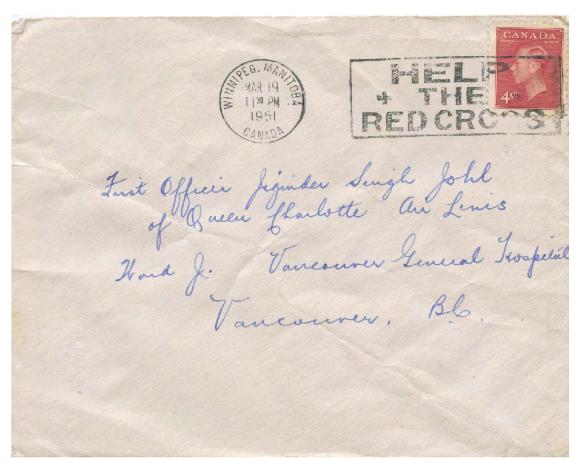 WINNIPEG, MANITOBA
MAR 19
11 30 PM
1951
CANADA
HELP
THE
RED CROSS
CANADA
4¢
First Officer Jiginder Singh Johl
of Queen Charlotte Air Lines
Ward J. Vancouver General Hospital
Vancouver, B.C.